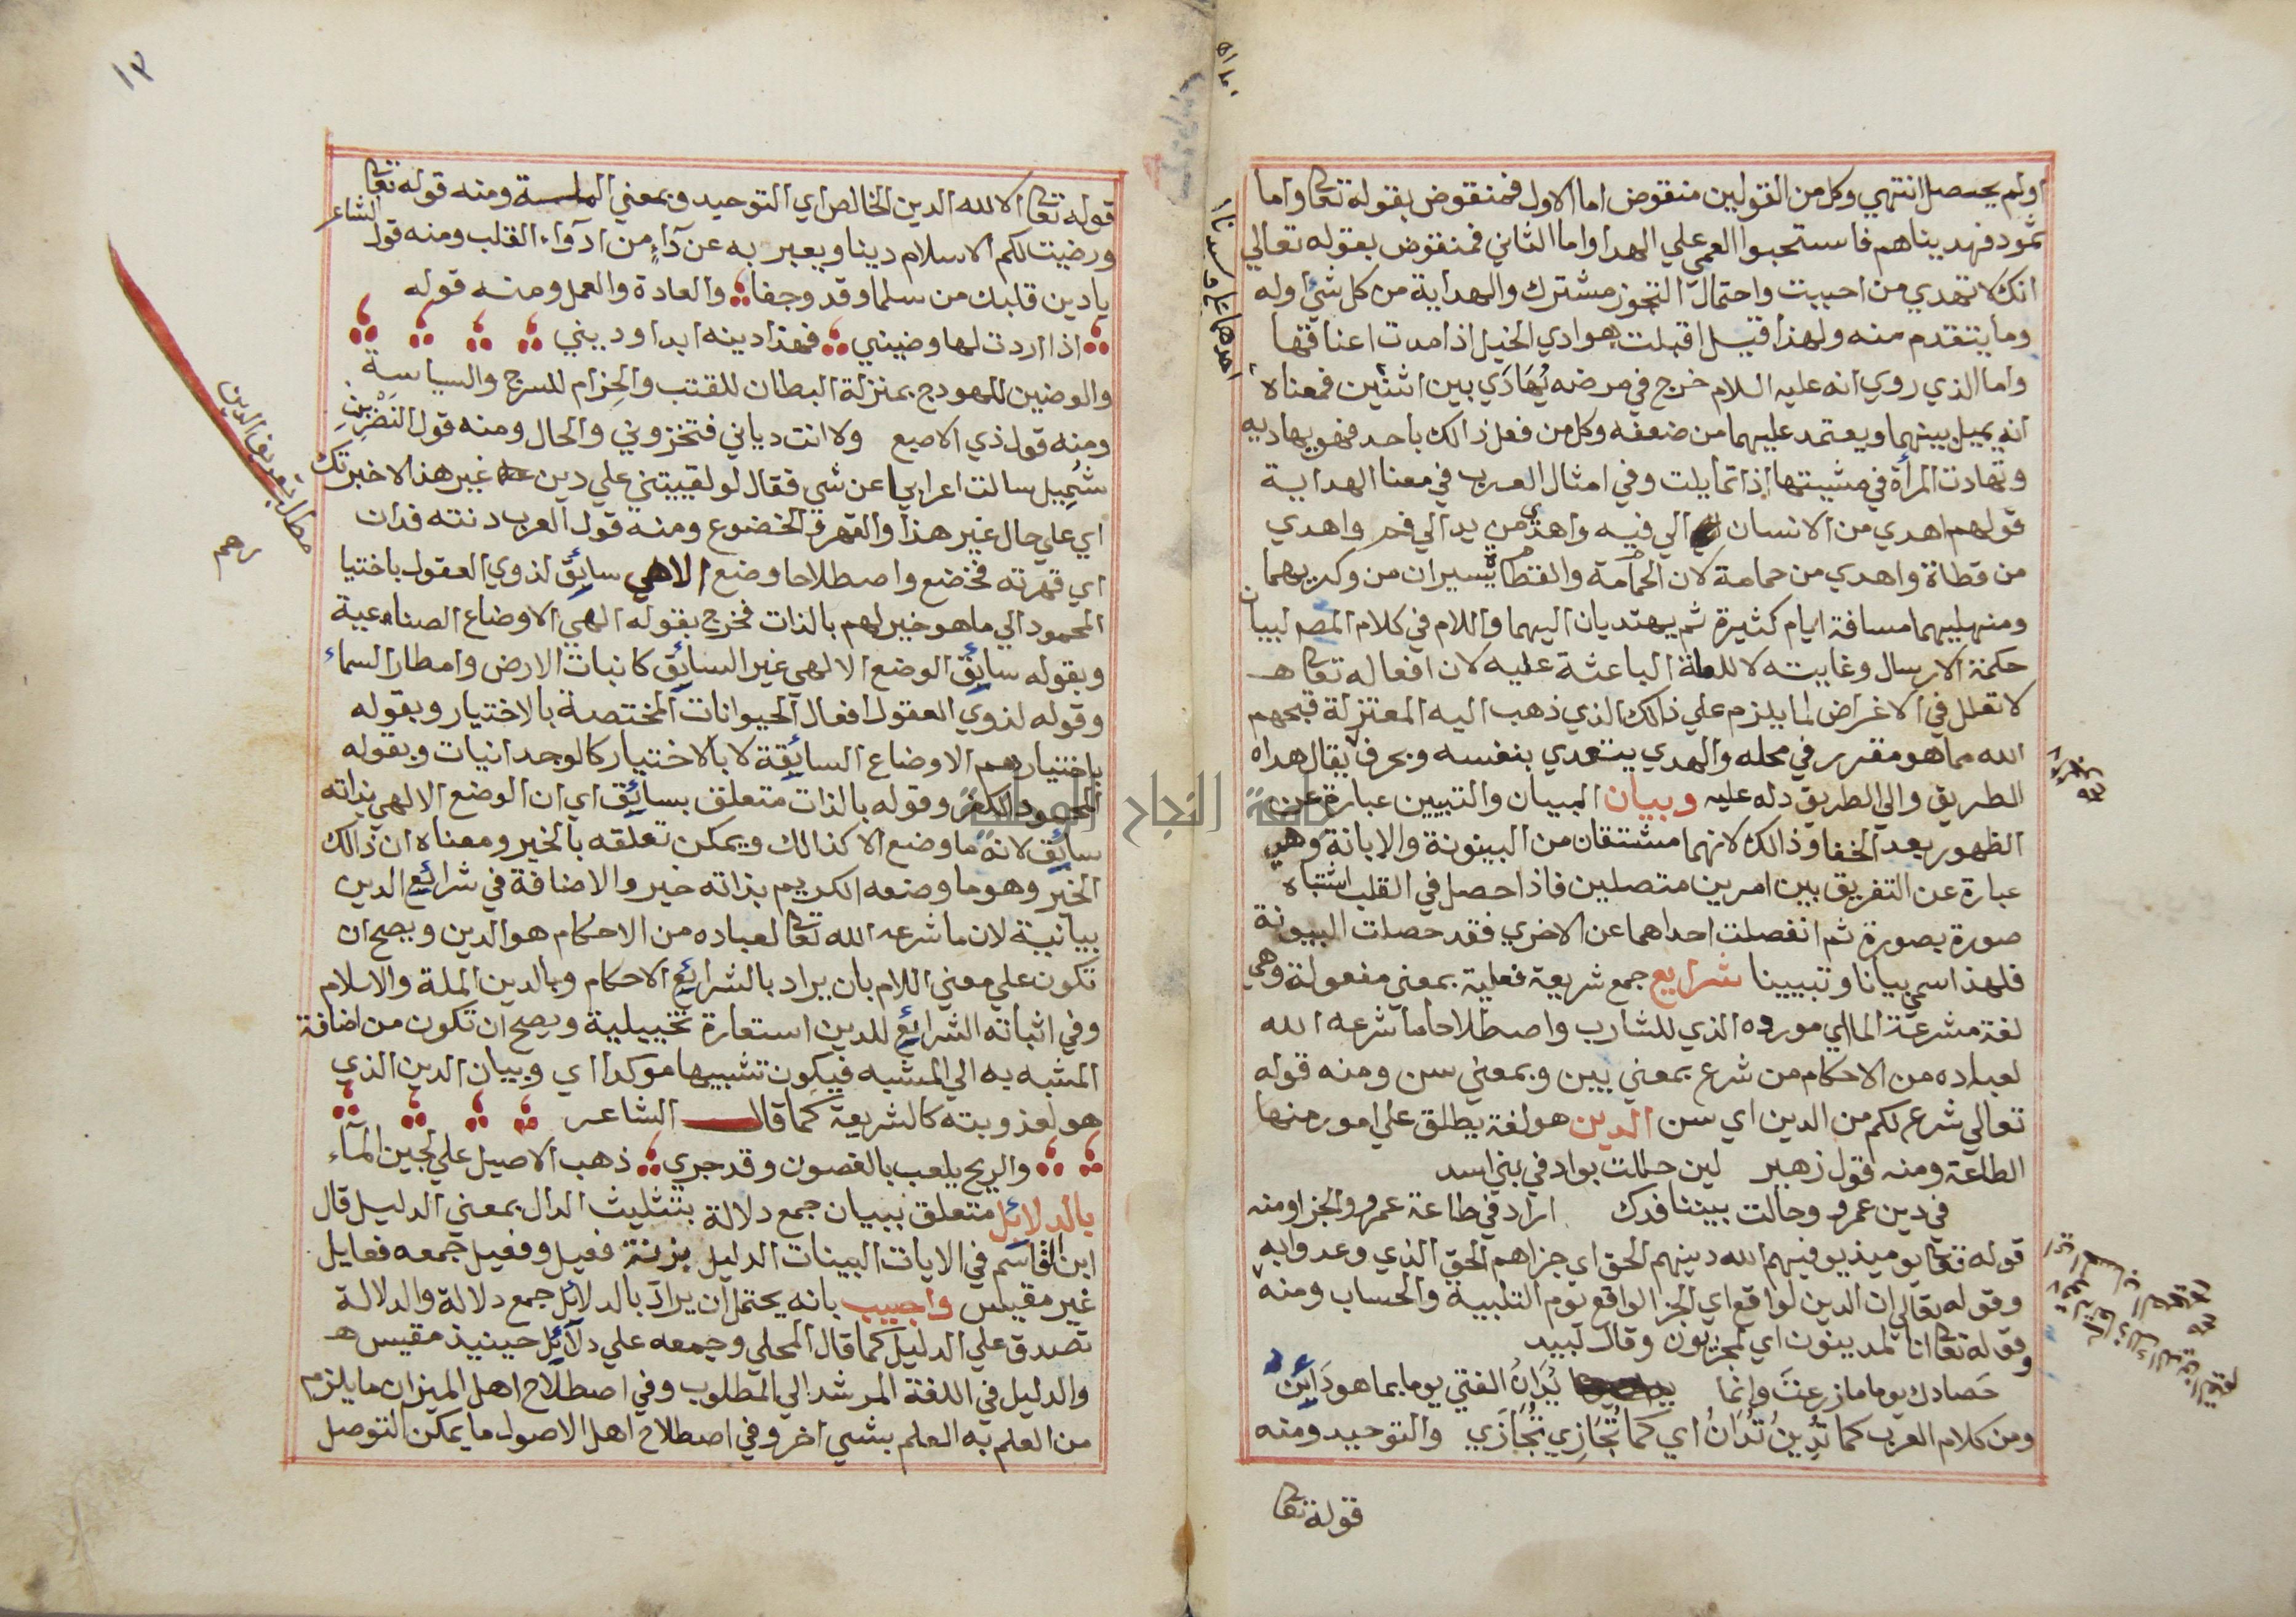 اولم يحصل انتهي وكل من القولين منقوض اما الاول فمنقوض بقوله تعا واما
ثمود فهديناهم فاستحبوا العمي علي الهدا واما الثاني فمنقوض بقوله تعالي
انك لا تهدي من احببت واحتمال التجوز مشترك والهداية من كل شيء اوله
وما يتقدم منه ولهذا قيل اقبلت هوادي الخيل اذا مدت اعناقها
واما الذي روي انه عليه السلام خرج في مرضه يُهَادَي بين اثنين فمعناه
انه يميل بينهما ويعتمد عليهما من ضعفه وكل من فعل ذالك باحد فهو يهاديه
وتهادت المرأة في مشيتها اذا تمايلت وفي امثال العرب في معنا الهداية
قولهم اهدي من الانسان الي فيه واهدي من يد الي فم واهدي
من قطاة واهدي من حمامة لان الحمامة والقطاة يسيران من وكريهما
ومنهليهما مسافة ايام كثيرة ثم يهتديان اليهما واللام في كلام المصم لبيان
حكمة الارسال وغايته لا للعلة الباعثة عليه لان افعاله تعا
لا تعلل في الاغراض لما يلزم علي ذالك الذي ذهب اليه المعتزلة قبحهم
الله مما هو مقرر في محله والهدي يتعدي بنفسه وبحرف يقال هداه
الطريق والي الطريق دله عليه وبيان البيان والتبيين عبارة عن
الظهور بعد الخفا وذالك لانهما مشتقان من البينونة والابانة وهي
عبارة عن التفريق بين امرين متصلين فاذا حصل في القلب اشتباه
صورة بصورة ثم انفصلت احداهما عن الاخري فقد حصلت البينونة
فلهذا سمي بيانا وتبيينا شرايع جمع شريعة فعلية بمعني مفعولة وهي
لغة مشرعة الما اي مورده الذي للشارب واصطلاحا ما شرعه الله
لعباده من الاحكام من شرع بمعني يبن وبمعني سن ومنه قوله
تعالي شرع لكم من الدين اي سن الدين هو لغة يطلق علي امور منها
الطاعة ومنه قول زهير لين حللت بواد في بني اسد
في دين عمرو وحالت بيننا فدك اراد في طاعة عمرو والجزا ومنه
قوله تعا يوميذ يوفيهم الله دينهم الحق اي جزاهم الحق الذي وعدوا به
وقوله تعالي ان الدين لواقع اي الجزا لواقع يوم التلبية والحساب ومنه
وقوله تعا انا لمدينون اي لمجزيون وقال لبيد
حَصادك يوما ما زرعتَ وانما يُدَانُ الفتي يوما بما هو دَائِن
ومن كلام العرب كما تُدِينُ تُدَانُ اي كما تُجَازِي تُجَازَي والتوحيد ومنه
قوله تعا
١٣
قوله تعا الا لله الدين الخالص اي التوحيد وبمعني الملسة ومنه قوله تعا
ورضيت لكم الاسلام دينا ويعبر به عن دآءٍ من ادوآء القلب ومنه قول الشاعر
يا دين قلبك من سلما وقد وجفا والعادة والعمل ومنه قوله
اذا اردت لها وضيني فهذا دينه ابدا وديني
والوضين للهودج بمنزلة البطان للقتب والحِزام للسرج والسياسة
ومنه قول ذي الاصبع ولا انت دياني فتخزوني والحال ومنه قول النَضْرِبن
شُمِيل سالت اعرابيا عن شي فقال لو لقيتني علي دين غير هذا لاخبرتك
اي علي حال غير هذا والقهر والخضوع ومنه قول العرب دنته فدان
اي قهرته فخضع واصطلاحا وضع الاهي سائق لذوي العقول باختيا
المحمود الي ما هو خير لهم بالذات فخرج بقوله الهي الاوضاع الصناعية
وبقوله سائق الوضع الالهي غير السائق كانبات الارض وامطار السماء
وقوله لذوي العقول افعال الحيوانات المختصة بالاختيار وبقوله
باختيارهم الاوضاع السائقة لا بالاختيار كالوجدانيات وبقوله
المحمود الكفر وقوله بالذات متعلق بسائق اي ان الوضع الالهي بذاته
سائق لانه ما وضع الا كذالك ويمكن تعلقه بالخير ومعناه ان ذالك
الخير وهو ما وضعه الكريم بذاته خير والاضافة في شرائع الدين
بيانية لان ما شرعه الله تعا لعباده من الاحكام هو الدين ويصح ان
تكون علي معني اللام بان يراد بالشرائع الاحكام وبالدين الملة والاسلام
وفي اثباته الشرائع للدين استعارة تخييلية ويصح ان تكون من اضافة
المشبه به الي المشبه فيكون تشبيها موكدا اي وبيان الدين الذي
هو لعذوبته كالشريعة كما قال الشاعر
والريح يلعب بالغصون وقد جري ذهب الاصيل علي لجين المآء
بالدلائل متعلق ببيان جمع دلالة بتثليث الدال بمعني الدليل قال
ابن القاسم في الايات البينات الدليل بزنة فعيل وفعيل جمعه فعايل
غير مقيس واجيب بانه يحتمل ان يراد بالدلائل جمع دلالة والدلالة
تصدق علي الدليل كما قال المحلي وجمعه علي دلائل حينيذ مقيس
والدليل في اللغة المرشد الي المطلوب وفي اصطلاح اهل الميزان ما يلزم
من العلم به العلم بشي اخر وفي اصطلاح اهل الاصول ما يمكن التوصل
مطلب تعريف الدين
جامعة النجاح الوطنية